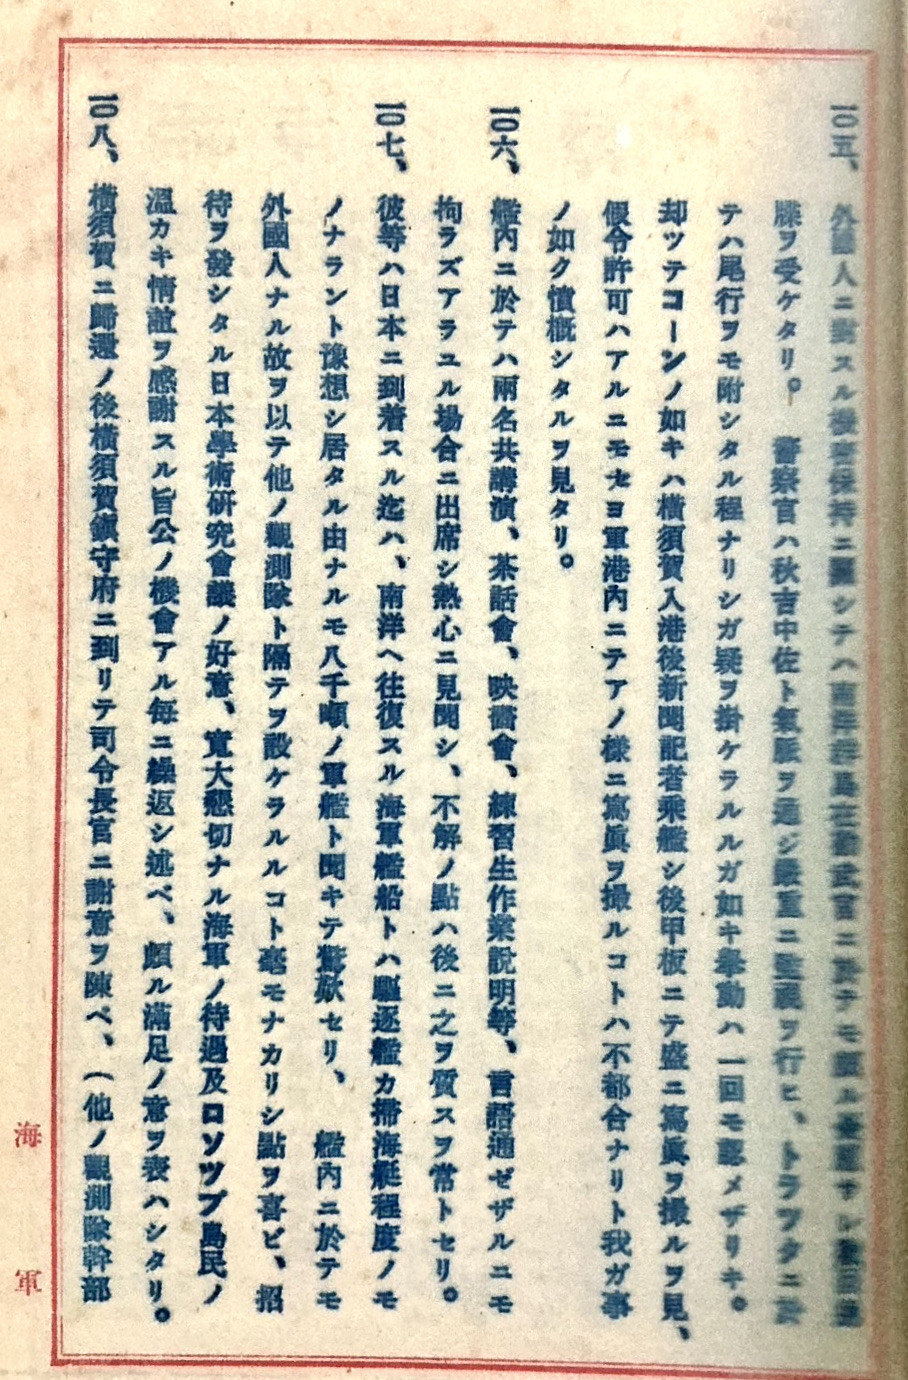 一〇五、外國人ニ對スル機密保持ニ關シテハ南洋群島在勤武官ニ於テモ頗ル
牒ヲ受ケタリ。 警察官ハ秋吉中佐ト氣脈ヲ通ジ嚴重ニ監視ヲ行ヒ、トラツクニ於
テハ尾行ヲモ附シタル程ナリシガ疑ヲ掛ケラルルガ如キ擧動ハ一回モ認メザリキ。
却ツテコーンノ如キハ横須賀入港後新聞記者乘艦シ後甲板ニテ盛ニ寫眞ヲ撮ルヲ見、
假令許可ハアルニモセヨ軍港內ニテアノ樣ニ寫眞ヲ撮ルコトハ不都合ナリト我ガ事
ノ如ク憤慨シタルヲ見タリ。
一〇六、艦內ニ於テハ兩名共講演、茶話會、映畵會、練習生作業說明等、言語通ゼザルニモ
拘ラズアラユル場合ニ出席シ熱心ニ見聞シ、不解ノ點ハ後ニ之ヲ質スヲ常トセリ。
一〇七、彼等ハ日本ニ到着スル迄ハ、南洋ヘ往復スル海軍艦船トハ驅逐艦カ掃海艇程度ノモ
ノナラント豫想シ居タル由ナルモ八千噸ノ軍艦ト聞キテ驚歎セリ、 艦內ニ於テモ
外國人ナル故ヲ以テ他ノ觀測隊ト隔テヲ設ケラルルコト毫モナカリシ點ヲ喜ビ、招
待ヲ發シタル日本學術硏究會議ノ好意、寬大懇切ナル海軍ノ待遇及ロソツプ島民ノ
溫カキ情誼ヲ感謝スル旨公ノ機會アル每ニ繰返シ述ベ、頗ル滿足ノ意ヲ表ハシタリ。
一〇八、橫須賀ニ歸還ノ後橫須賀鎭守府ニ到リテ司令長官ニ謝意ヲ陳ベ、(他ノ觀測隊幹部
海軍